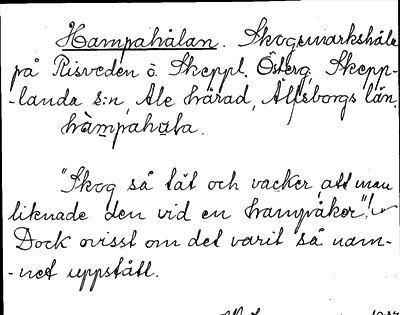 Hampahålan. Skogsmarkshåla
på Risveden ö. Skeppl. Österg. Skepp-
-landa s:n, Ale härad, Älfsborgs län.
hàmpahala.
"Skog så tät och vacker, att man
liknade den vid en hampåker"!
Dock ovisst om det varit så nam-
-net uppstått.